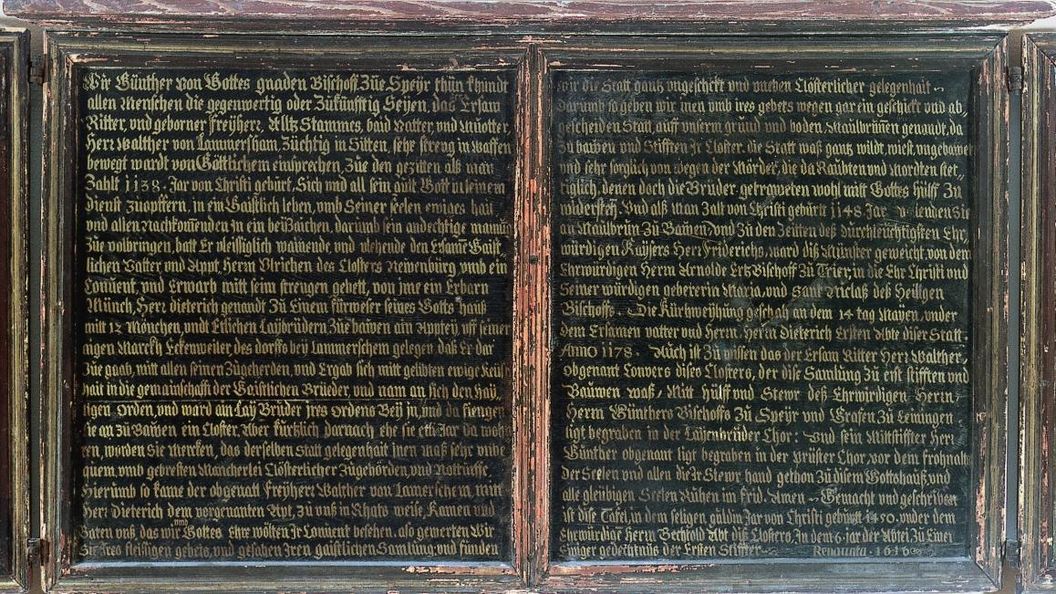 Wir Günther von Gottes gnaden Bischoff Züe Speÿr thün khundt
allen Menschen die gegenwertig oder Zükünfftig Seÿen, das Ersam
Ritter, vnd geborner freÿherr, Altz Stammes, baid Vatter, vnd Muotter,
Herr Walther von Lammersham Züchtig in Sitten, sehr streng in waffen
bewegt wardt von Göttlichem einsprechen, Züe den gezitten als man
Zahlt 1138. Jar von Christi gebürt, Sich vnd all sein gütt Gott in seinem
dienst Züopffern, in ein Gaistlich leben, vmb Seiner seelen ewiges hail
vnd allen Nachkomenden Zu ein beÿZaichen, darumb sein andechtige
Züe volbringen, batt Er vleissiglich wainende vnd vlehende den Ersame Gaist,,
lichen Vatter, vnd Appt, Herrn Vlrichen des Closters Newenbürg vmb ein
Conuent, vnd Erwarb mitt seim strengen gebett, von jme ein Erbarn
Münch, Herr dieterich genandt Zü Einem fürweser seines Gotts hauß
mitt 12 Mönchen, vndt Etlichen Laÿbrüdern Züe bawen ain Apptey, vff seiner
aigen Marckh Eckenweiler, des dorffs beÿ Lammerschem gelegen, daß Er dar
Züe gab, mitt allen seinen Zügeherden, vnd Ergab sich mitt gelübten ewige Keüsch
hait in die gemainschafft der Gaistlichen Brüeder, vnd nam an sich den
igen Orden, vnd ward ain Laÿ Brüder jres ordens Beÿ jn, vnd da fiengen
sie an Zü Bawen ein Closter, Aber kürtzlich darnach ehe sie ettl. Jar da
ren, worden Sie mercken, das derselben statt gelegenhait jnen waß sehr
quem, vmb gebresten Mancherlei Clösterlicher Zügehörden, vnd Notturfft,
Hierümb so kame der obgenatt freÿherr Walther von Lamerschem, mitt
Herr Dieterich dem vorgenanten Apt, Zü vnß in Rhats weise, Kamen vnd
Baten vnß, das wir vmb Gottes Ehre wölten Jr Conuent besehen, also gewerten Wir
Sie Jres fleissigen gebets, vnd gesahen Jren gaistlichen Samlung, vnd funden
wir die Statt gantz vngeschickt vnd vneben Clösterlicher gelegenhait
Darumb so geben wir jnen vmb ires gebets wegen gar ein geschickt vnd ab,
gescheiden Statt, auff vnserm grund vnd boden Maulbrunen genandt, da
Zü bawen vnd Stifften Jr Closter, die Statt waß gantz wildt, wiest, vngebawet
vnd sehr sorglich, von wegen der Mörder, die da Raübten vnd Mordten stet,,
tiglich, denen doch die Brüder getraweten wohl mitt Gottes hülff Zu
widersteh, Vnd alß Man Zalt von Christi gebürt 1148 Jar
an Maulbrün Zu Bawen, vnd Zu den Zeitten deß dürchleuchtigsten Ehr,
würdigen Kaÿsers Herr Friderichs, ward diß Münster geweicht, von dem
Ehrwürdigen Herrn Arnolde ErtzBischoff Zü Trier, in die Ehr Christi vnd
Seiner würdigen gebererin Maria, vnd Sant Niclaß deß Heiligen
Bischoffs. Die Kürchweÿhung geschah an dem 14 tag Maÿen, vnder
dem Ersamen vatter vnd Herrn, Herr Dieterich Ersten Abte diser Statt.
Anno 1178. Auch ist Zü wissen das der Ersam Ritter Herr Walther,
obgenant Convers dises Closters, der dise Samlung Zü erst stifften vnd
Bauwen waß, Mitt Hülff vnd Stewr deß Ehrwirdigen Herrn,
Herrn Günthers Bischoffs Zü Speÿr vnd Grafen Zü Leiningen
ligt begraben in der Laÿenbrüder Chor: Vnd sein Mittstiffter Herr
Günther obgenant ligt begraben in der Prüster Chor, vor dem frohnaltar
der Seelen vnd allen die Jr Stewr hand gethon Zü disem Gottshauß, vnd
alle gleubigen Seelen Rühen im frid. Amen ~ Gemacht vnd geschriben
ist dise Tafel, in dem seligen guldin Jar von Christi gebürtt 1450. vnder dem
Ehrwürdige Herrn Bechtold Abt diß Closters, In dem 6 jar der Abtei Zü Ewei
Ewiger gedechtnüs der Ersten Stiffter. Renouatu. 1616